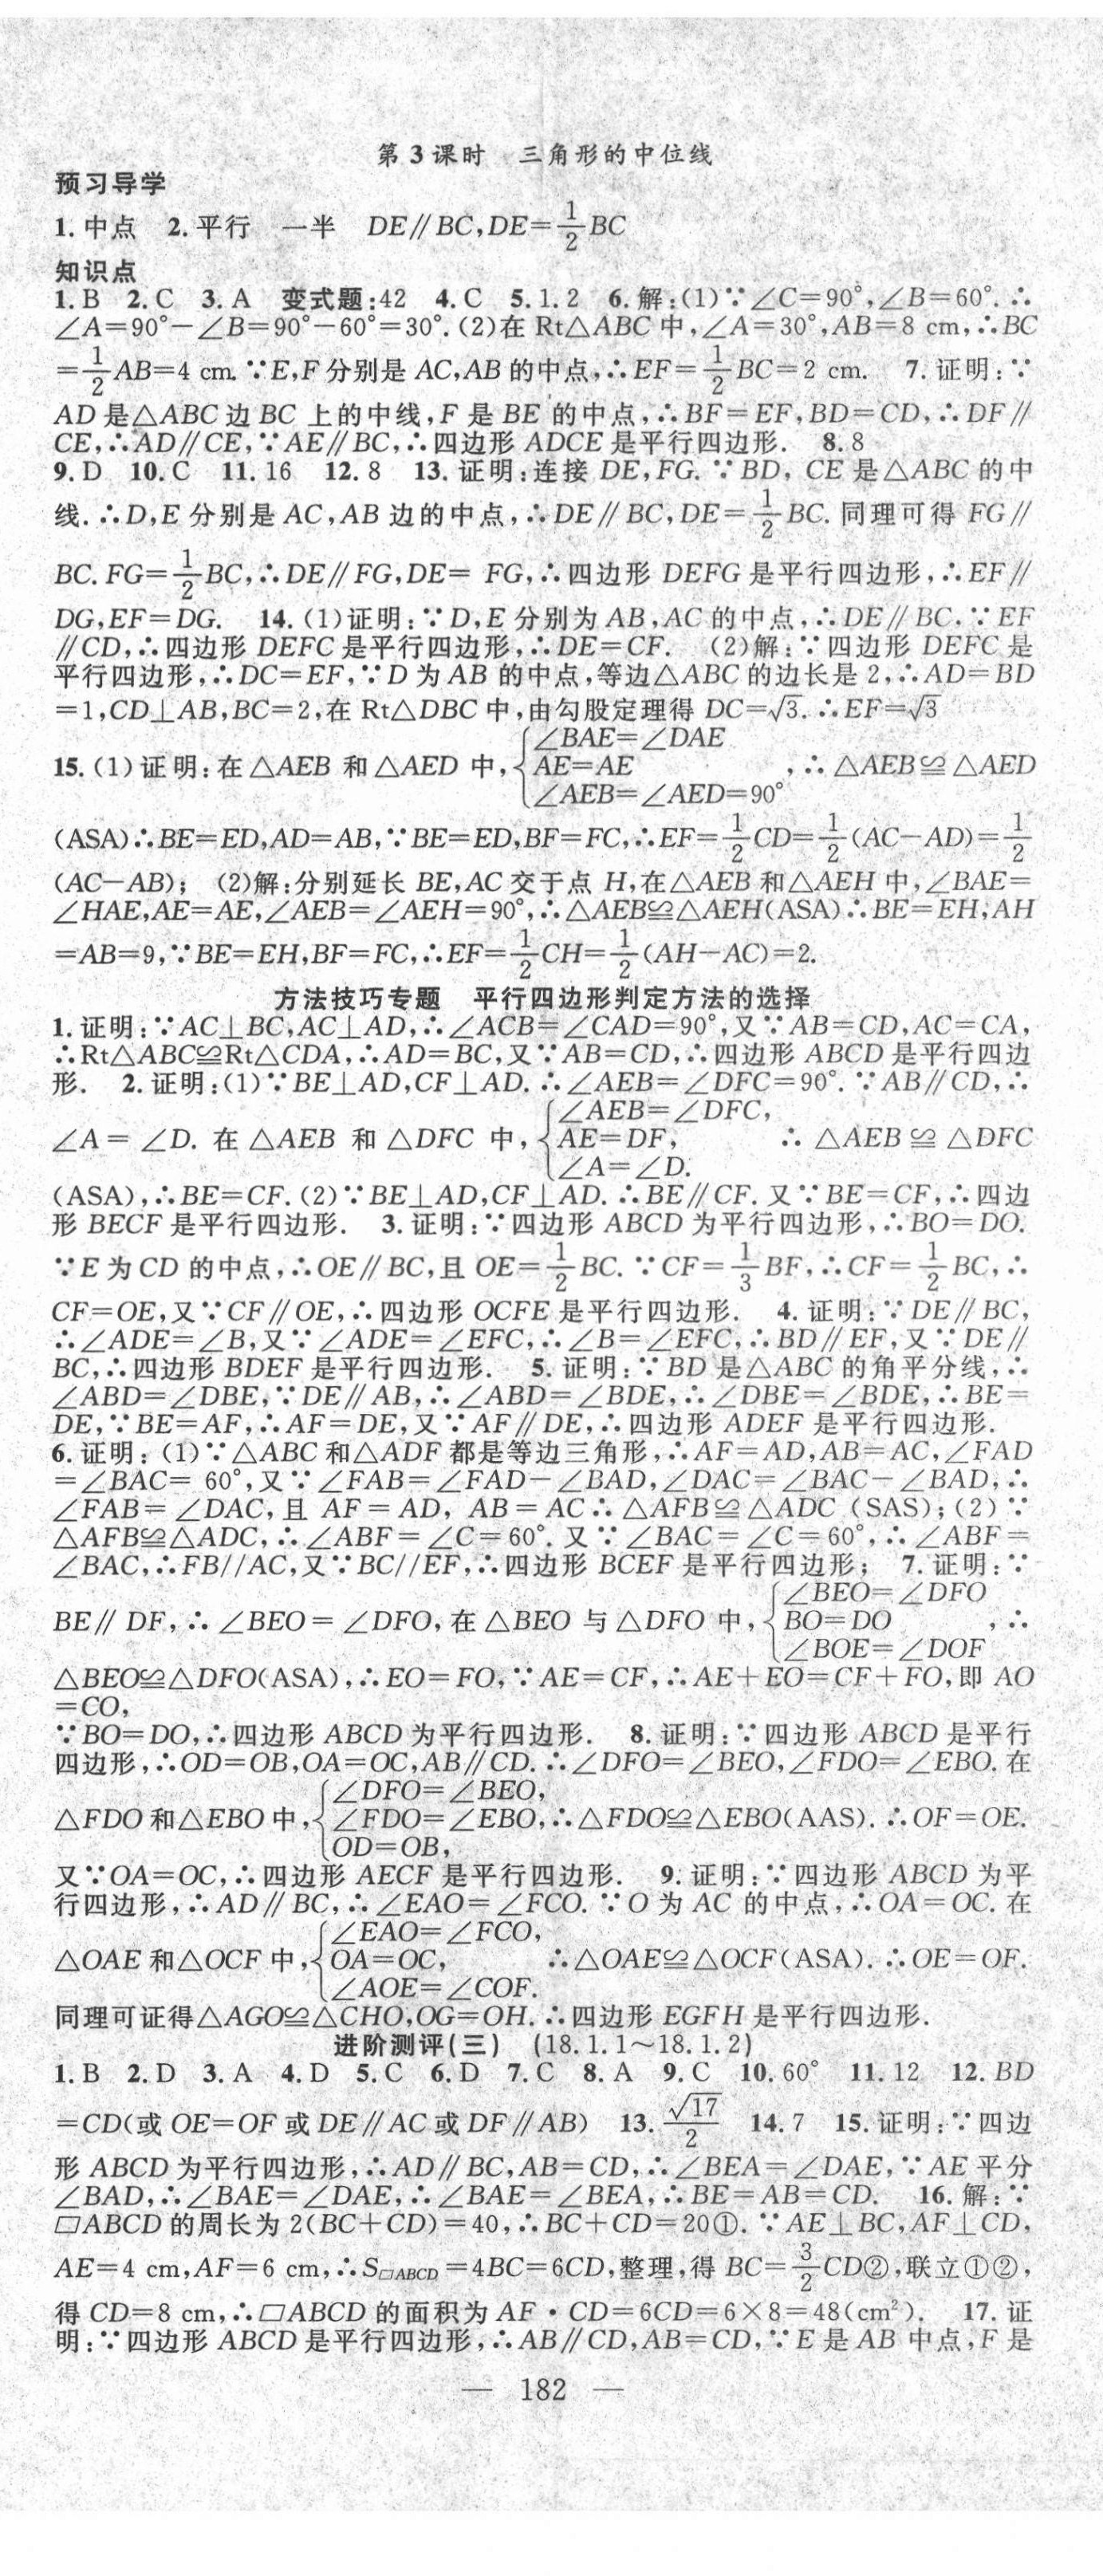 第3课时　三角形的中位线
预习导学
1.中点　2.平行　一半　DE∥BC,DE=1/2BC
知识点
1.B　2.C　3.A　变式题:42　4.C　5.1.2　6.解:(1)∵∠C=90°,∠B=60°.∴
∠A=90°-∠B=90°-60°=30°.(2)在Rt△ABC中,∠A=30°,AB=8 cm,∴BC
=1/2AB=4 cm.∵E,F分别是AC,AB的中点,∴EF=1/2BC=2 cm.　7.证明:∵
AD是△ABC边BC上的中线,F是BE的中点,∴BF=EF,BD=CD,∴DF∥
CE,∴AD∥CE,∵AE∥BC,∴四边形ADCE是平行四边形.　8.8
9.D　10.C　11.16　12.8　13.证明:连接DE,FG.∵BD,CE是△ABC的中
线.∴D,E分别是AC,AB边的中点,∴DE∥BC,DE=1/2BC.同理可得FG∥
BC.FG=1/2BC,∴DE∥FG,DE=FG,∴四边形DEFG是平行四边形,∴EF∥
DG,EF=DG.　14.(1)证明:∵D,E分别为AB,AC的中点,∴DE∥BC.∵EF
∥CD,∴四边形DEFC是平行四边形,∴DE=CF.　(2)解:∵四边形DEFC是
平行四边形,∴DC=EF,∵D为AB的中点,等边△ABC的边长是2,∴AD=BD
=1,CD⊥AB,BC=2,在Rt△DBC中,由勾股定理得DC=√3.∴EF=√3
15.(1)证明:在△AEB和△AED中,{∠BAE=∠DAE AE=AE ∠AEB=∠AED=90°,∴△AEB≌△AED
(ASA)∴BE=ED,AD=AB,∵BE=ED,BF=FC,∴EF=1/2CD=1/2(AC-AD)=1/2
(AC-AB);　(2)解:分别延长BE,AC交于点H,在△AEB和△AEH中,∠BAE=
∠HAE,AE=AE,∠AEB=∠AEH=90°,∴△AEB≌△AEH(ASA)∴BE=EH,AH
=AB=9,∵BE=EH,BF=FC,∴EF=1/2CH=1/2(AH-AC)=2.
方法技巧专题　平行四边形判定方法的选择
1.证明:∵AC⊥BC,AC⊥AD,∴∠ACB=∠CAD=90°,又∵AB=CD,AC=CA,
∴Rt△ABC≌Rt△CDA,∴AD=BC,又∵AB=CD,∴四边形ABCD是平行四边
形.　2.证明:(1)∵BE⊥AD,CF⊥AD.∴∠AEB=∠DFC=90°.∵AB∥CD,∴
∠A=∠D.在△AEB和△DFC中,{∠AEB=∠DFC, AE=DF, ∠A=∠D. ∴△AEB≌△DFC
(ASA),∴BE=CF.(2)∵BE⊥AD,CF⊥AD.∴BE∥CF.又∵BE=CF,∴四边
形BECF是平行四边形.　3.证明:∵四边形ABCD为平行四边形,∴BO=DO.
∵E为CD的中点,∴OE∥BC,且OE=1/2BC.∵CF=1/3BF,∴CF=1/2BC,∴
CF=OE,又∵CF∥OE,∴四边形OCFE是平行四边形.　4.证明:∵DE∥BC,
∴∠ADE=∠B,又∵∠ADE=∠EFC,∴∠B=∠EFC,∴BD∥EF,又∵DE∥
BC,∴四边形BDEF是平行四边形.　5.证明:∵BD是△ABC的角平分线,∴
∠ABD=∠DBE,∵DE∥AB,∴∠ABD=∠BDE,∴∠DBE=∠BDE,∴BE=
DE,∵BE=AF,∴AF=DE,又∵AF∥DE,∴四边形ADEF是平行四边形.
6.证明:(1)∵△ABC和△ADF都是等边三角形,∴AF=AD,AB=AC,∠FAD
=∠BAC=60°,又∵∠FAB=∠FAD-∠BAD,∠DAC=∠BAC-∠BAD,∴
∠FAB=∠DAC,且AF=AD,AB=AC∴△AFB≌△ADC(SAS);(2)∵
△AFB≌△ADC,∴∠ABF=∠C=60°.又∵∠BAC=∠C=60°,∴∠ABF=
∠BAC,∴FB//AC,又∵BC//EF,∴四边形BCEF是平行四边形;　7.证明:∵
BE∥DF,∴∠BEO=∠DFO,在△BEO与△DFO中,{∠BEO=∠DFO BO=DO ∠BOE=∠DOF,∴
△BEO≌△DFO(ASA),∴EO=FO,∵AE=CF,∴AE+EO=CF+FO,即AO
=CO,
∵BO=DO,∴四边形ABCD为平行四边形.　8.证明:∵四边形ABCD是平行
四边形,∴OD=OB,OA=OC,AB∥CD.∴∠DFO=∠BEO,∠FDO=∠EBO.在
△FDO和△EBO中,{∠DFO=∠BEO, ∠FDO=∠EBO, OD=OB, ∴△FDO≌△EBO(AAS).∴OF=OE.
又∵OA=OC,∴四边形AECF是平行四边形.　9.证明:∵四边形ABCD为平
行四边形,∴AD∥BC,∴∠EAO=∠FCO.∵O为AC的中点,∴OA=OC.在
△OAE和△OCF中,{∠EAO=∠FCO, OA=OC, ∠AOE=∠COF. ∴△OAE≌△OCF(ASA).∴OE=OF.
同理可证得△AGO≌△CHO,OG=OH.∴四边形EGFH是平行四边形.
进阶测评(三)　(18.1.1~18.1.2)
1.B　2.D　3.A　4.D　5.C　6.D　7.C　8.A　9.C　10.60°　11.12　12.BD
=CD(或OE=OF或DE∥AC或DF∥AB)　13.√17/2　14.7　15.证明:∵四边
形ABCD为平行四边形,∴AD∥BC,AB=CD,∴∠BEA=∠DAE,∵AE平分
∠BAD,∴∠BAE=∠DAE,∴∠BAE=∠BEA,∴BE=AB=CD.　16.解:∵
▱ABCD的周长为2(BC+CD)=40,∴BC+CD=20①.∵AE⊥BC,AF⊥CD,
AE=4 cm,AF=6 cm,∴S▱ABCD=4BC=6CD,整理,得BC=3/2CD②,联立①②,
得CD=8 cm,∴▱ABCD的面积为AF·CD=6CD=6×8=48(cm²).　17.证
明:∵四边形ABCD是平行四边形,∴AB∥CD,AB=CD,∵E是AB中点,F是
— 182 —